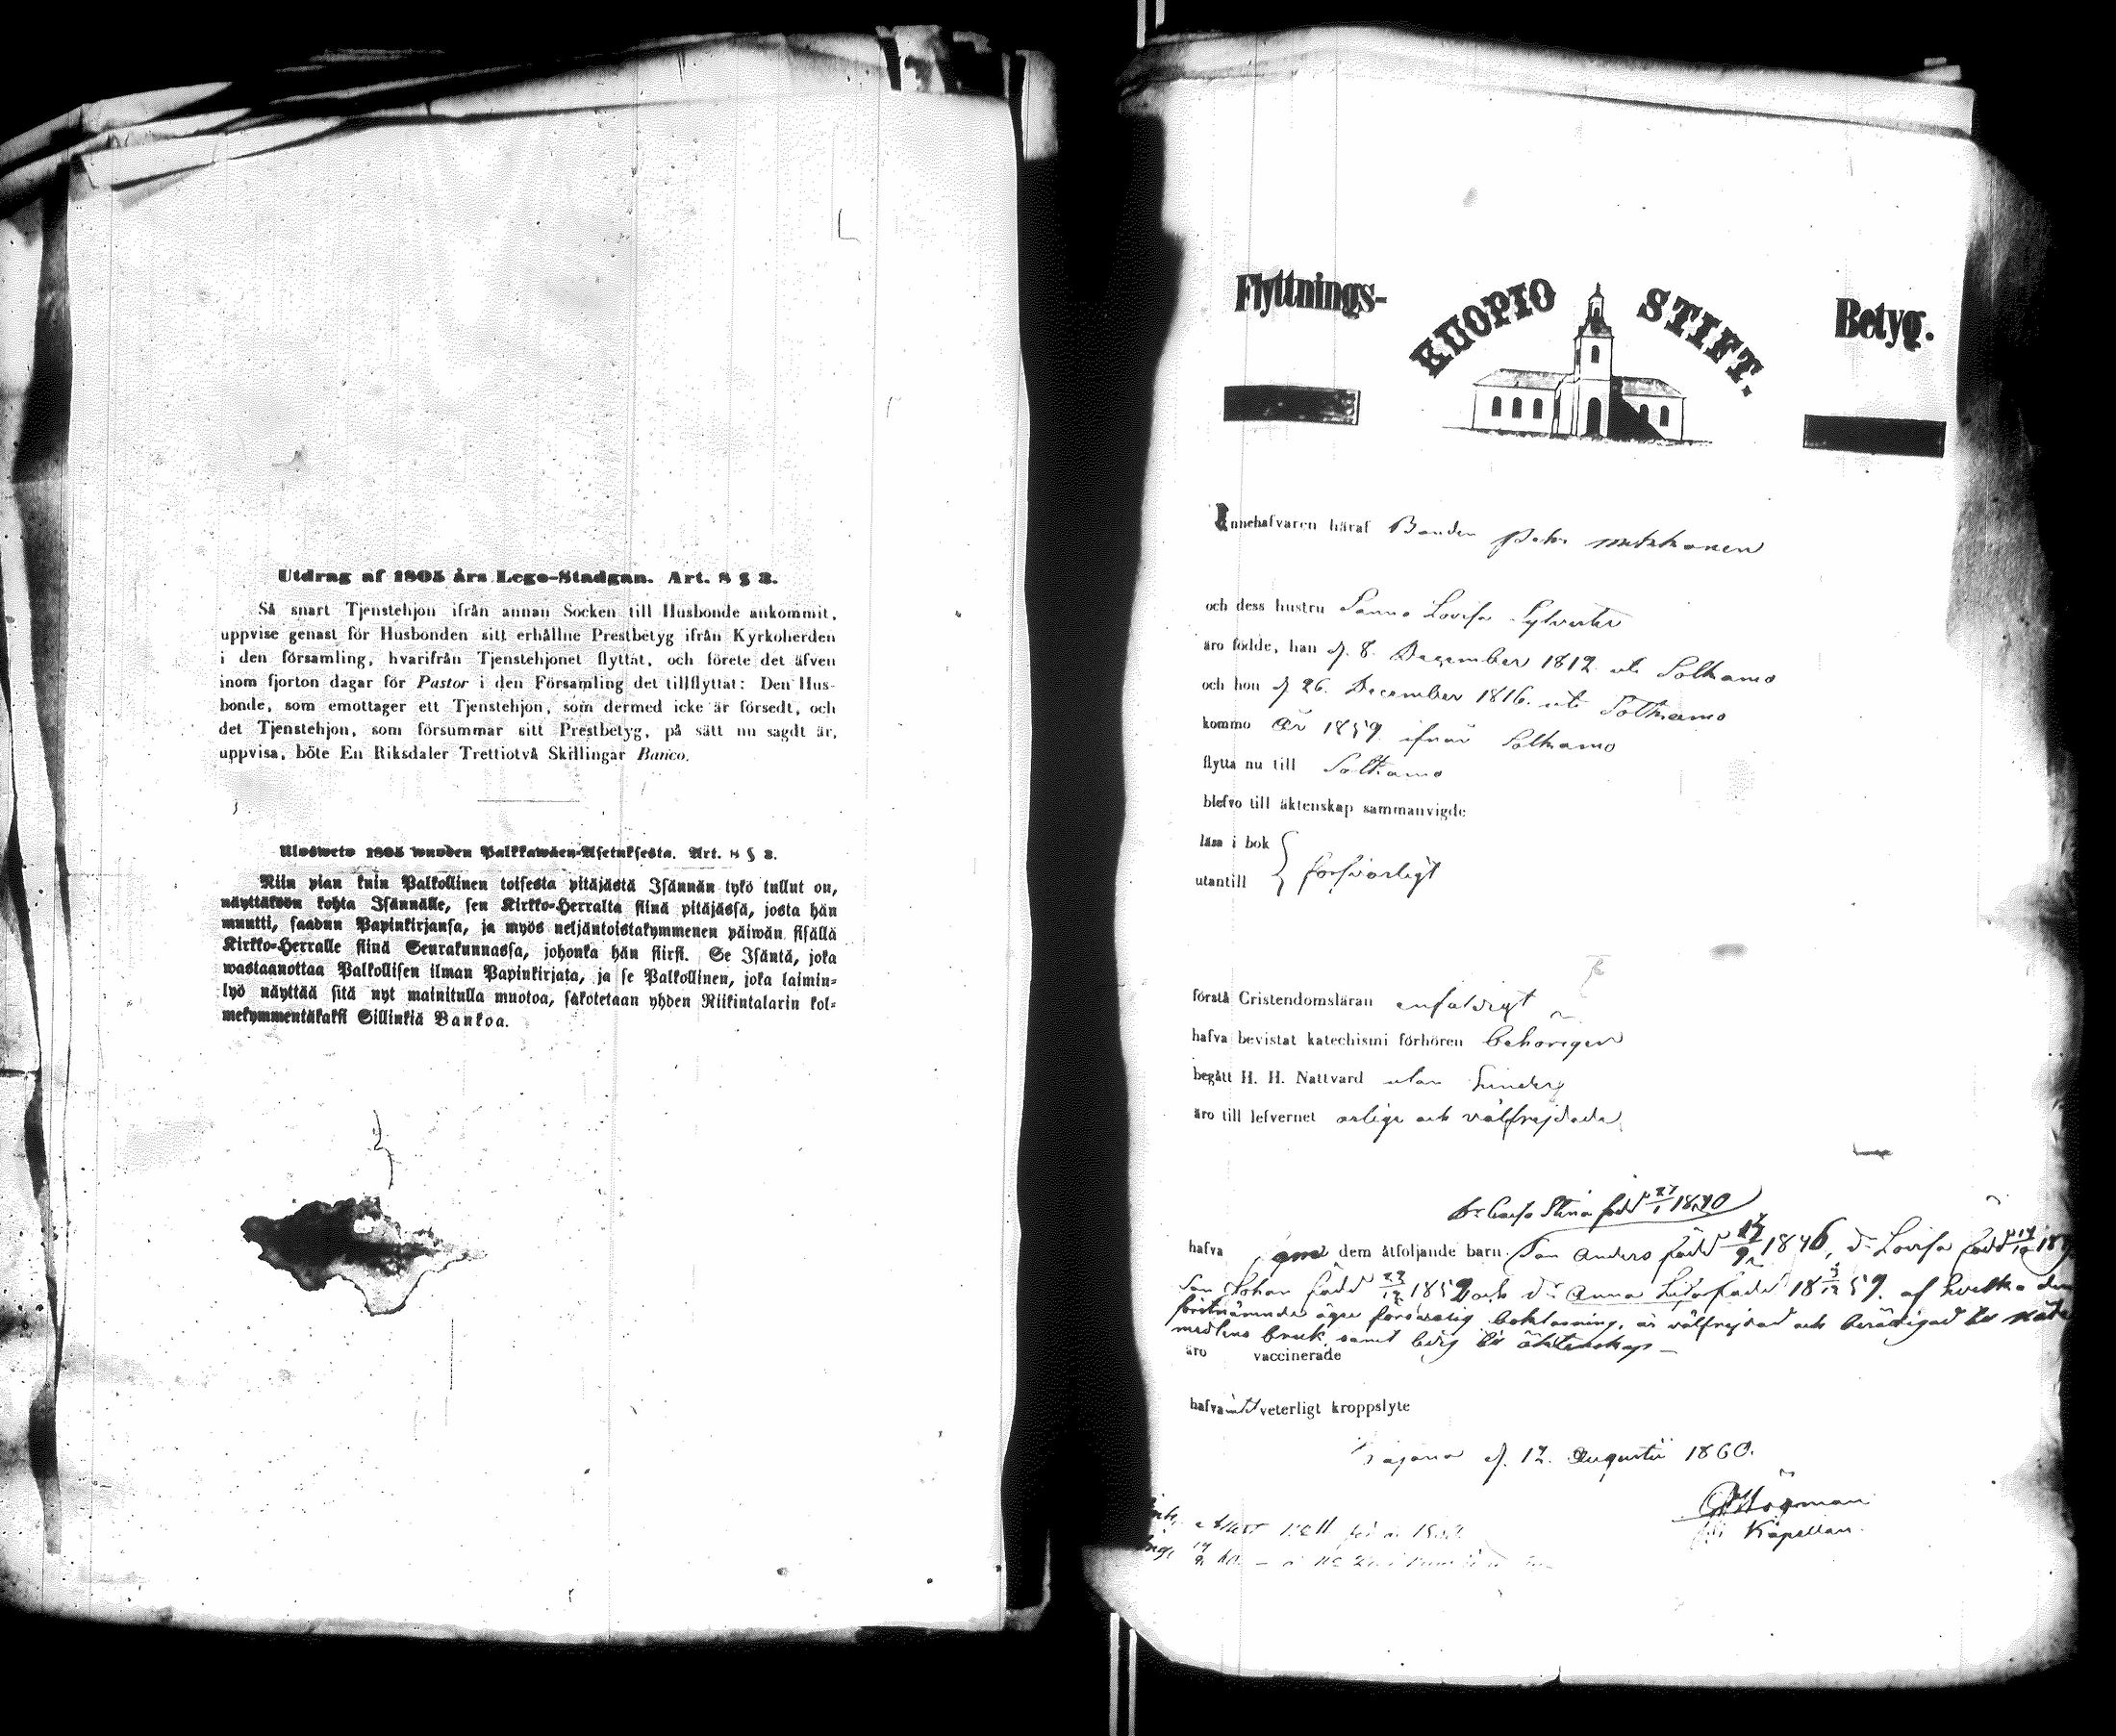 Utdrag af 1805 års Lego-Stadgan. Art. 8 § 3.
Så snart Tjenstehjon ifrån annan Socken till Husbonde ankommit,
uppvise genast för Husbonden sitt erhållne Prestbetyg ifrån Kyrkoherden
i den församling, hvarifrån Tjenstehjonet flyttat, och förete det äfven
inom fjorton dagar för Pastor i den Församling det tillflyttat: Den Hus-
bonde, som emottager ett Tjenstehjon, som dermed icke är försedt, och
det Tjenstehjon, som försummar sitt Prestbetyg, på sätt nu sagdt är,
uppvisa, böte En Riksdaler Trettiotvå Skillingar Banco.
Ulosweto 1805 wuoden Palkkawäen-Asetuksesta. Art. 8 § 3.
Niin pian kuin Palkollinen toisesta pitäjästä Isännän tykö tullut on,
näyttäköön kohta Isännälle, sen Kirkko-Herralta siinä pitäjässä, josta hän
muutti, saadun Papinkirjansa, ja myös neljäntoistakymmenen päiwän sisällä
Kirkko-Herralle siinä Seurakunnassa, johonka hän siirsi. Se Isäntä, joka
wastaanottaa Palkollisen ilman Papinkirjata, ja se Palkollinen, joka laimin-
lyö näyttää sitä nyt mainitulla muotoa, sakotetaan yhden Riikintalarin kol-
mekymmentäkaksi Sillinkiä Bankoa.
Flyttnings- KUOPIO STIFT. Betyg.
Innehafvaren häraf Bonden Petter
och dess hustru Sanna Lovisa Sylvester
äro födde, han d. 8. December 1812 uti Sotkamo
och hon d 26. December 1816. uti Sotkamo
kommo år 1859 ifrån Sotkamo
flytta nu till Sotkamo
blefvo till äktenskap sammanvigde
läsa i bok
utantill } försvarligt
förstå Cristendomsläran enfaldigt
hafva bevistat katechismi förhören behörigen
begått H. H. Nattvard utan hinder
äro till lefvernet ärlige och välfrejdade
Stina född 1840
hafva dem åtföljande barn: Son Anders född 1846, Lovisa född
Son Johan född 1852 och Anna född 1859. af hvilka den
förstnämnde äger försvarlig bokläsning, är välfrejdad och berättigad till
medlens bruk samt ledig till äktenskap –
äro vaccinerade
hafva intet veterligt kroppslyte
Kajana d. 12. Augusti 1860.
Högman
Kapellan.